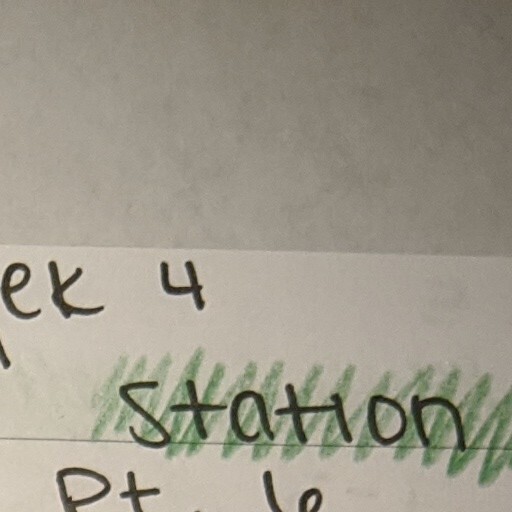 ek 4
station
Pt. 6